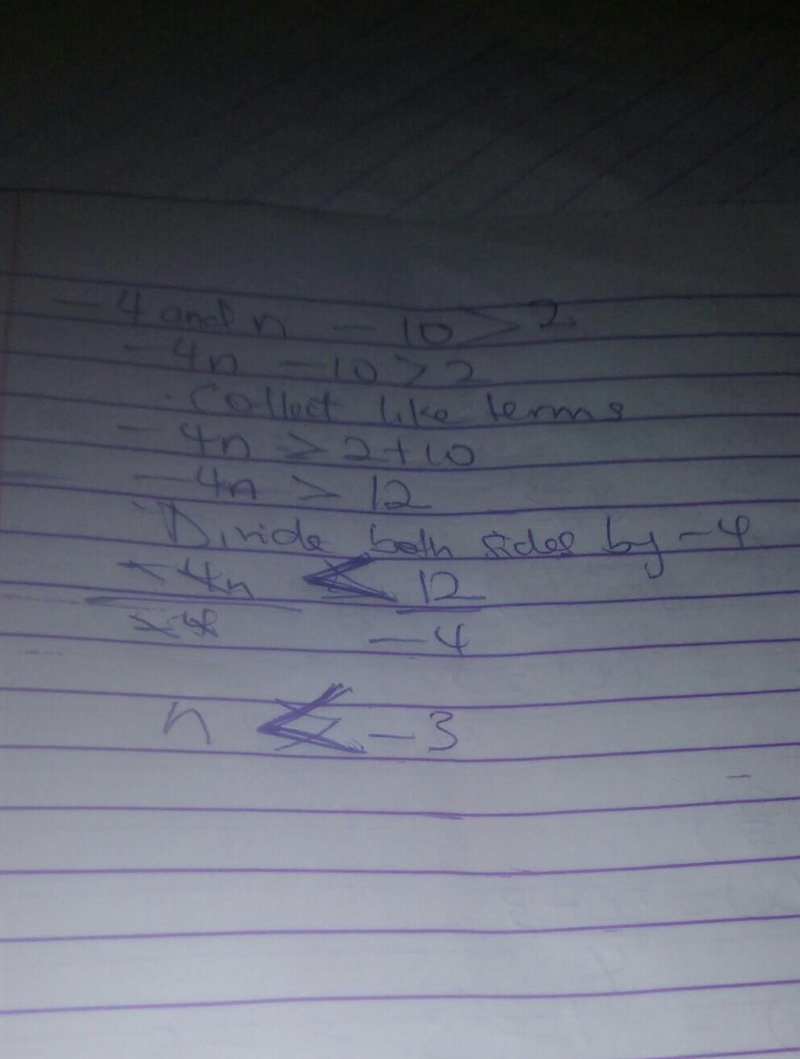 - 4 and n - 10 > 2
- 4n - 10 > 2
Collect like terms
- 4n > 2+10
- 4n > 12
Divide both sides by -4
-4n < 12
-4 -4
n < -3